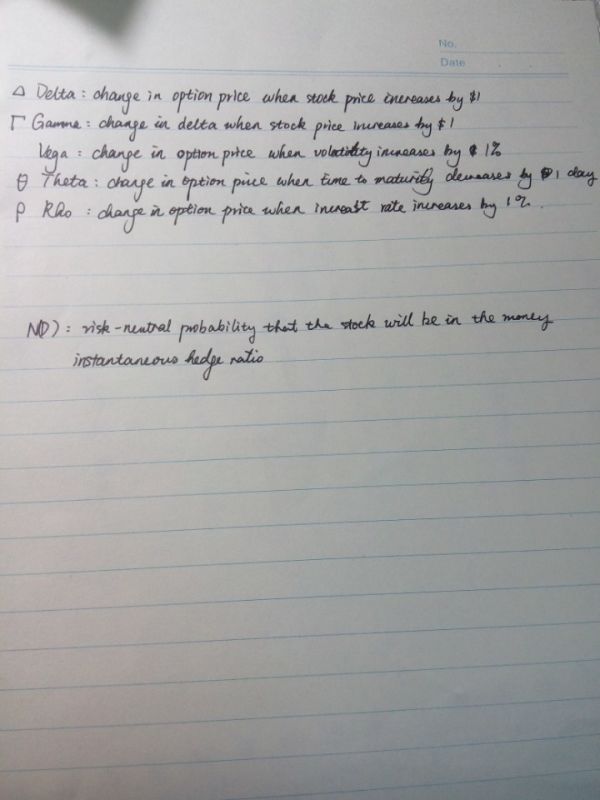 No.
Date
Δ Delta : change in option price when stock price increases by $1
Γ Gamma : change in delta when stock price increases by $1
Vega : change in option price when volatility increases by 1%
θ Theta : change in option price when time to maturity decreases by 1 day
ρ Rho : change in option price when interest rate increases by 1%.
N(D) : risk-neutral probability that the stock will be in the money
instantaneous hedge ratio